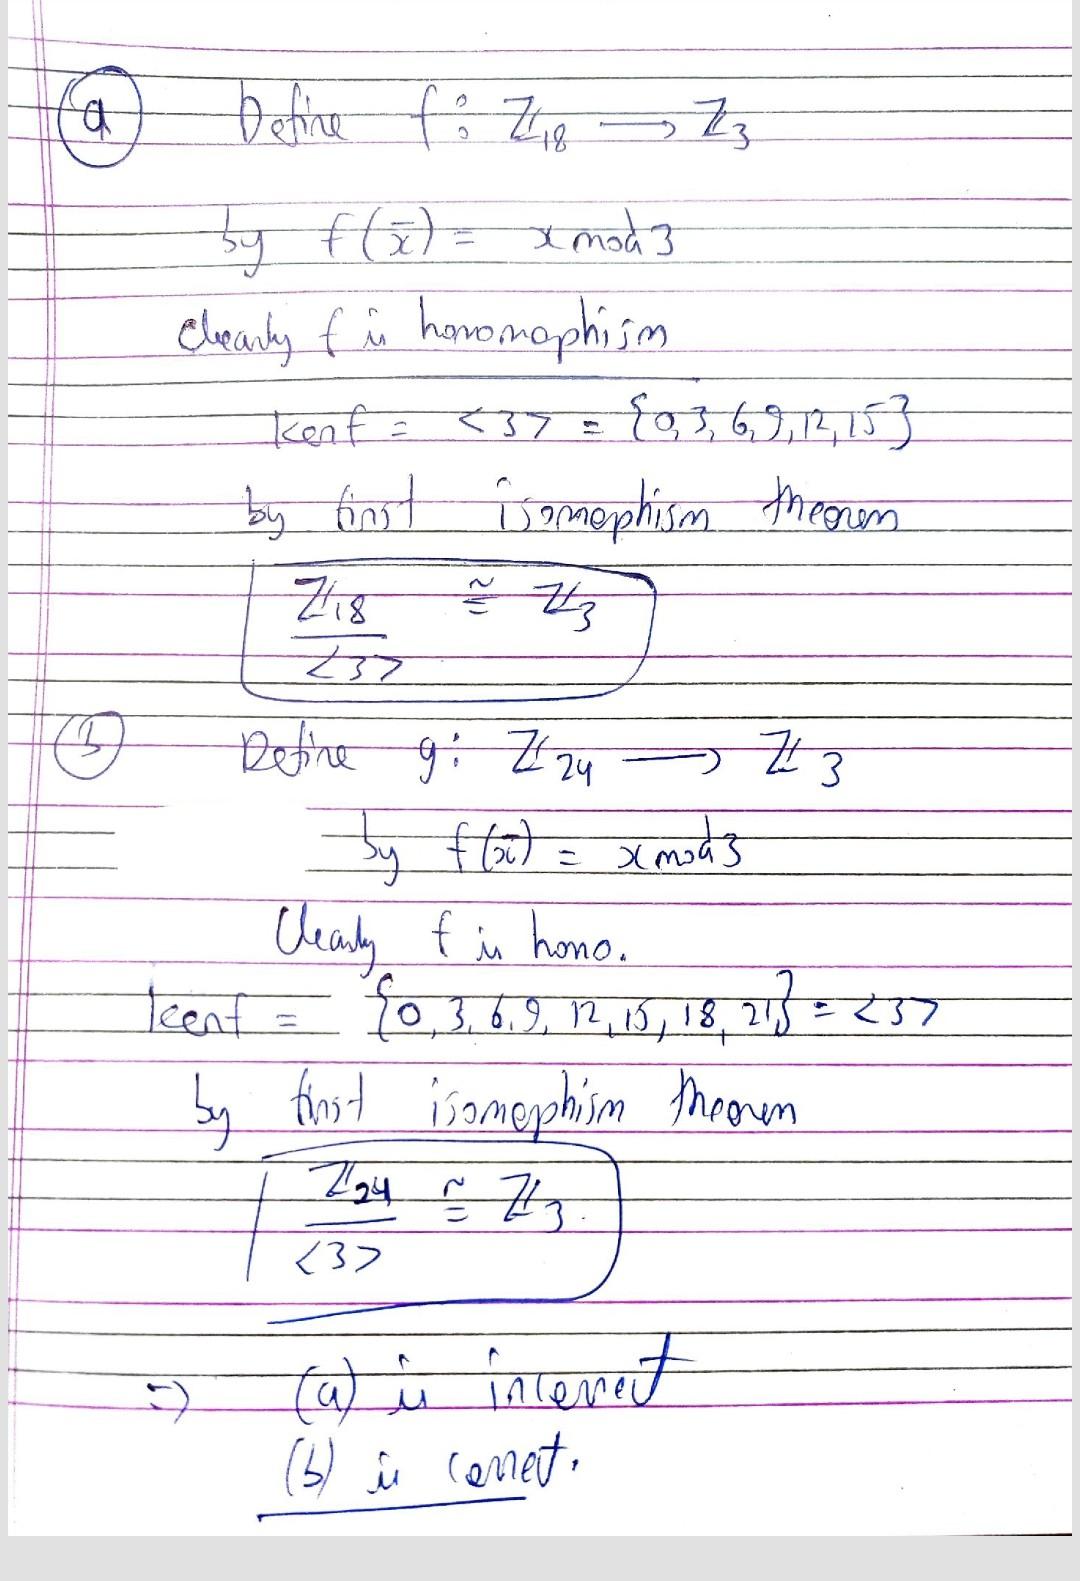 (a) Define f : ℤ₁₈ → ℤ₃
by f(x̄) = x mod 3
Clearly f is homomophism
kerf = <3> = {0, 3, 6, 9, 12, 15}
by first isomophism theorem
ℤ₁₈ ≅ ℤ₃
<3>
(b) Define g : ℤ₂₄ → ℤ₃
by f(x̄) = x mod 3
Clearly f is homo.
kerf = {0, 3, 6, 9, 12, 15, 18, 21} = <3>
by first isomophism theorem
ℤ₂₄ ≅ ℤ₃.
<3>
⇒ (a) is incorrect
(b) is correct.